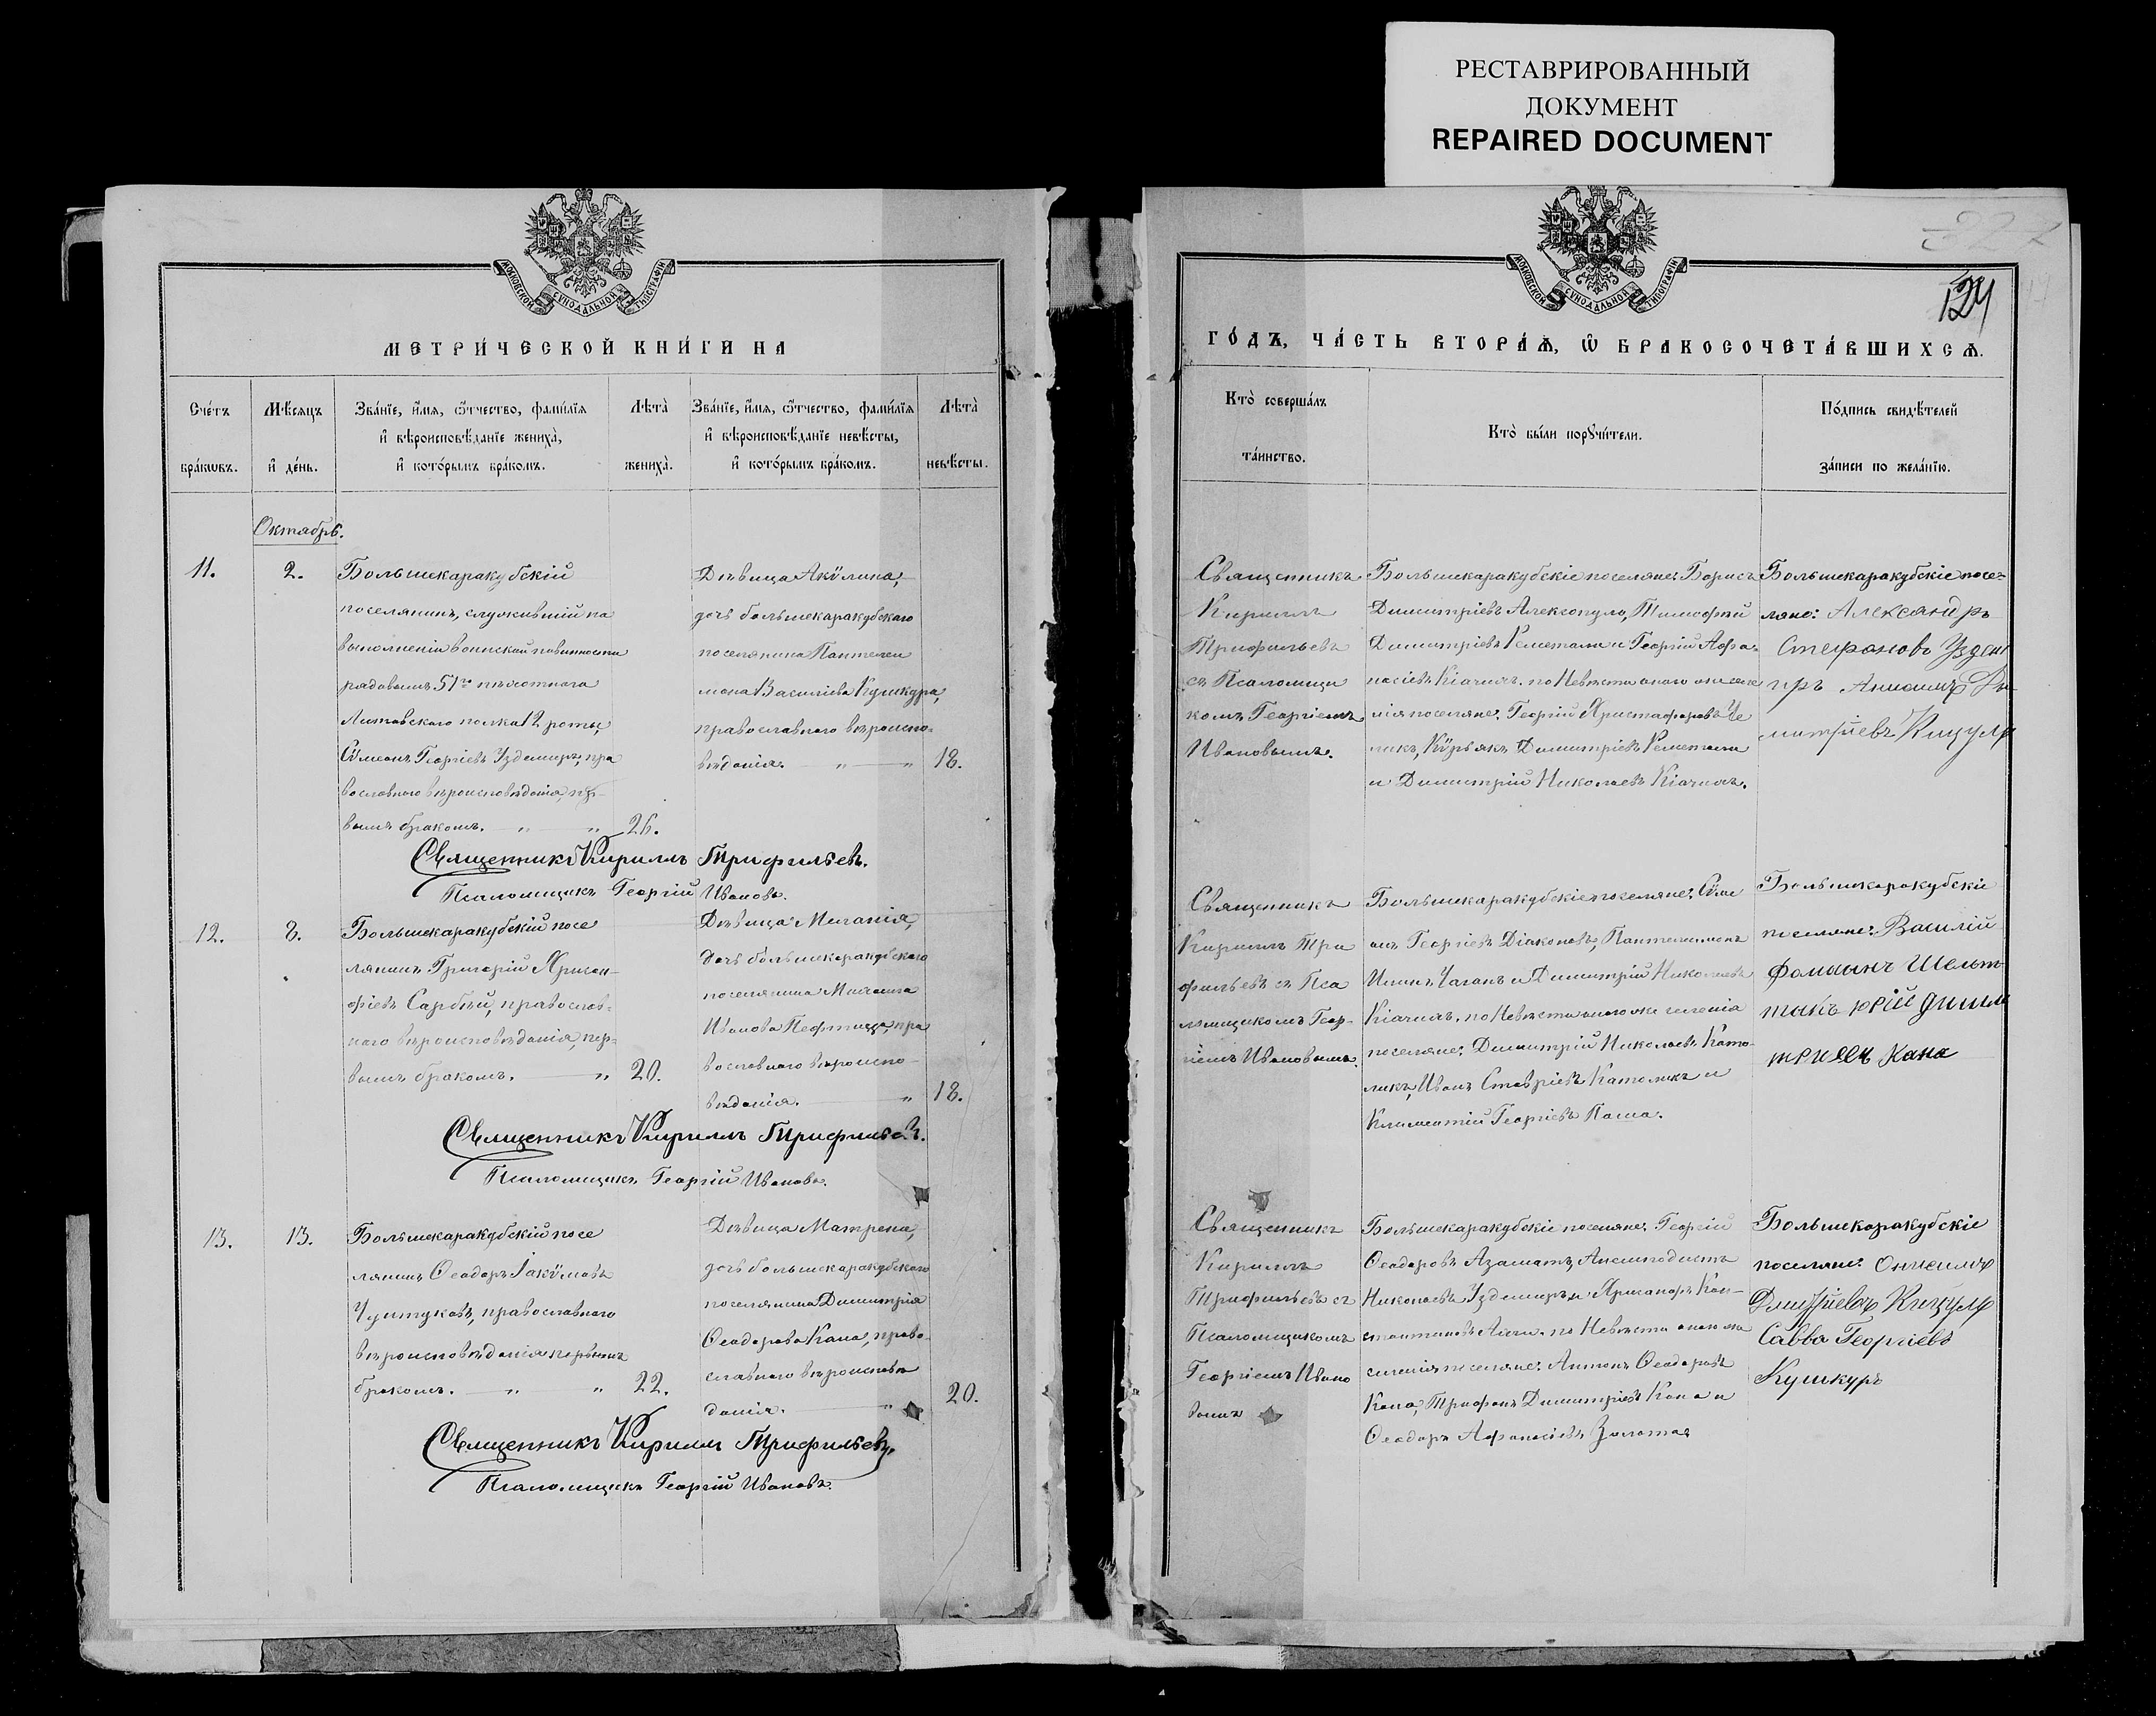 РЕСТАВРИРОВАННЫЙ
ДОКУМЕНТ
REPAIRED DOCUMENT
МОСКОВСКОЙ СѴНОДАЛЬНОЙ ТИПОГРАФІИ
МЕТРИ́ЧЕСКОЙ КНИ́ГИ НА
Сче́тъ бра́кѡвъ.
Мѣ́сяцъ и҆ де́нь.
Зва́нїе, и҆́мя, ѻ҆́тчество, фами́лїя
и҆ вѣроисповѣ́данїе жениха̀,
и҆ кото́рымъ бра́комъ.
Лѣ́та жениха̀.
Зва́нїе, и҆́мя, ѻ҆́тчество, фами́лїя
и҆ вѣроисповѣ́данїе невѣ́сты,
и҆ кото́рымъ бра́комъ.
Лѣ́та невѣ́сты.
Октябрь.
11.
2.
Большекаракубскій
поселянинъ, служившій на
выполненіи воинской повинности
рядовымъ 51го пѣхотнаго
Литовскаго полка 12 роты,
Сѵмеонъ Георгіевъ Уздениръ, пра
вославнаго вѣроисповѣданія, пер-
вымъ бракомъ. „ „ 26.
Дѣвица Акѵлина,
дочь большекаракубскаго
поселянина Пантелеи
мона Василіева Кушкура,
православнаго вѣроиспо-
вѣданія. „ „ 18.
Священникъ Кириллъ Трифильевъ.
Псаломщикъ Георгій Ивановъ.
12.
8.
Большекаракубскій посе
лянинъ Григорій Хрисан-
фіевъ Сарбей, православ-
наго вѣроисповѣданія, пер-
вымъ бракомъ. „ 20.
Дѣвица Меланія,
дочь большекаракубскаго
поселянина Михаила
Иванова Пефтицза, пра
вославнаго вѣроиспо-
вѣданія. „ 18.
Священникъ Кириллъ Трифильевъ.
Псаломщикъ Георгій Ивановъ.
13.
13.
Большекаракубскій посе
лянинъ Ѳеодоръ Іакѵмовъ
Чунтуковъ, православнаго
вѣроисповѣданія первымъ
бракомъ. „ „ 22.
Дѣвица Матрена,
дочь большекаракубскаго
поселянина Димитрія
Ѳеодорова Кана, право-
славнаго вѣроисповѣ
данія. „ 20.
Священникъ Кириллъ Трифильевъ.
Псаломщикъ Георгій Ивановъ.
МОСКОВСКОЙ СѴНОДАЛЬНОЙ ТИПОГРАФІИ
124
ГО́ДЪ, ЧА́СТЬ ВТОРА́Ѧ, Ѽ БРАКОСОЧЕТА́ВШИХСѦ.
Кто̀ соверша́лъ та́инство.
Кто̀ бы́ли порꙋчи́тели.
По́дпись свидѣ́телей
за́писи по жела́нїю.
Священникъ
Кириллъ
Трифильевъ
съ Псаломщи
комъ Георгіемъ
Ивановымъ.
Большекаракубскіе поселяне: Борисъ
Димитріевъ Алексопуло, Тимофей
Димитріевъ Кеметали и Георгій Афа-
насіевъ Кіачихъ. по Невѣстѣ онаго же селе
нія поселяне: Георгій Христафоровъ Че
ликъ, Кѵріакъ Димитріевъ Кеметали
и Димитрій Николаевъ Кіачихъ.
Большекаракубскіе посе-
ляне: Александръ
Стефановъ Узден
иръ Анисимъ Ди-
митріевъ Кицулъ
Священникъ
Кириллъ Три
фильевъ съ Пса
ломщикомъ Геор-
гіемъ Ивановымъ.
Большекаракубскіе поселяне: Сѵме
онъ Георгіевъ Діаконовъ, Пантелеимонъ
Ильинъ Чаганъ и Димитрій Николаевъ
Кіачихъ. по Невѣстѣ онаго же селенія
поселяне: Димитрій Николаевъ Като-
ликъ, Иванъ Ставріевъ Католикъ и
Климентій Георгіевъ Паша.
Большекаракубскіе
поселяне: Василій
Фоминъ Шелът
Кана
Священникъ
Кириллъ
Трифильевъ съ
Псаломщикомъ
Георгіемъ Ивано
вымъ
Большекаракубскіе поселяне: Георгій
Ѳеодоровъ Азаматъ, Анемподистъ
Николаевъ Уздениръ и Хрисанфъ Кон-
стантиновъ Аічи. по Невѣстѣ онаго же
селенія поселяне: Антонъ Ѳеодоровъ
Кана, Трифонъ Димитріевъ Кана и
Ѳеодоръ Афанасіевъ Золотая
Большекаракубскіе
поселяне: Онисимъ
Дмитріевъ Кицулъ
Савва Георгіевъ
Кушкуръ